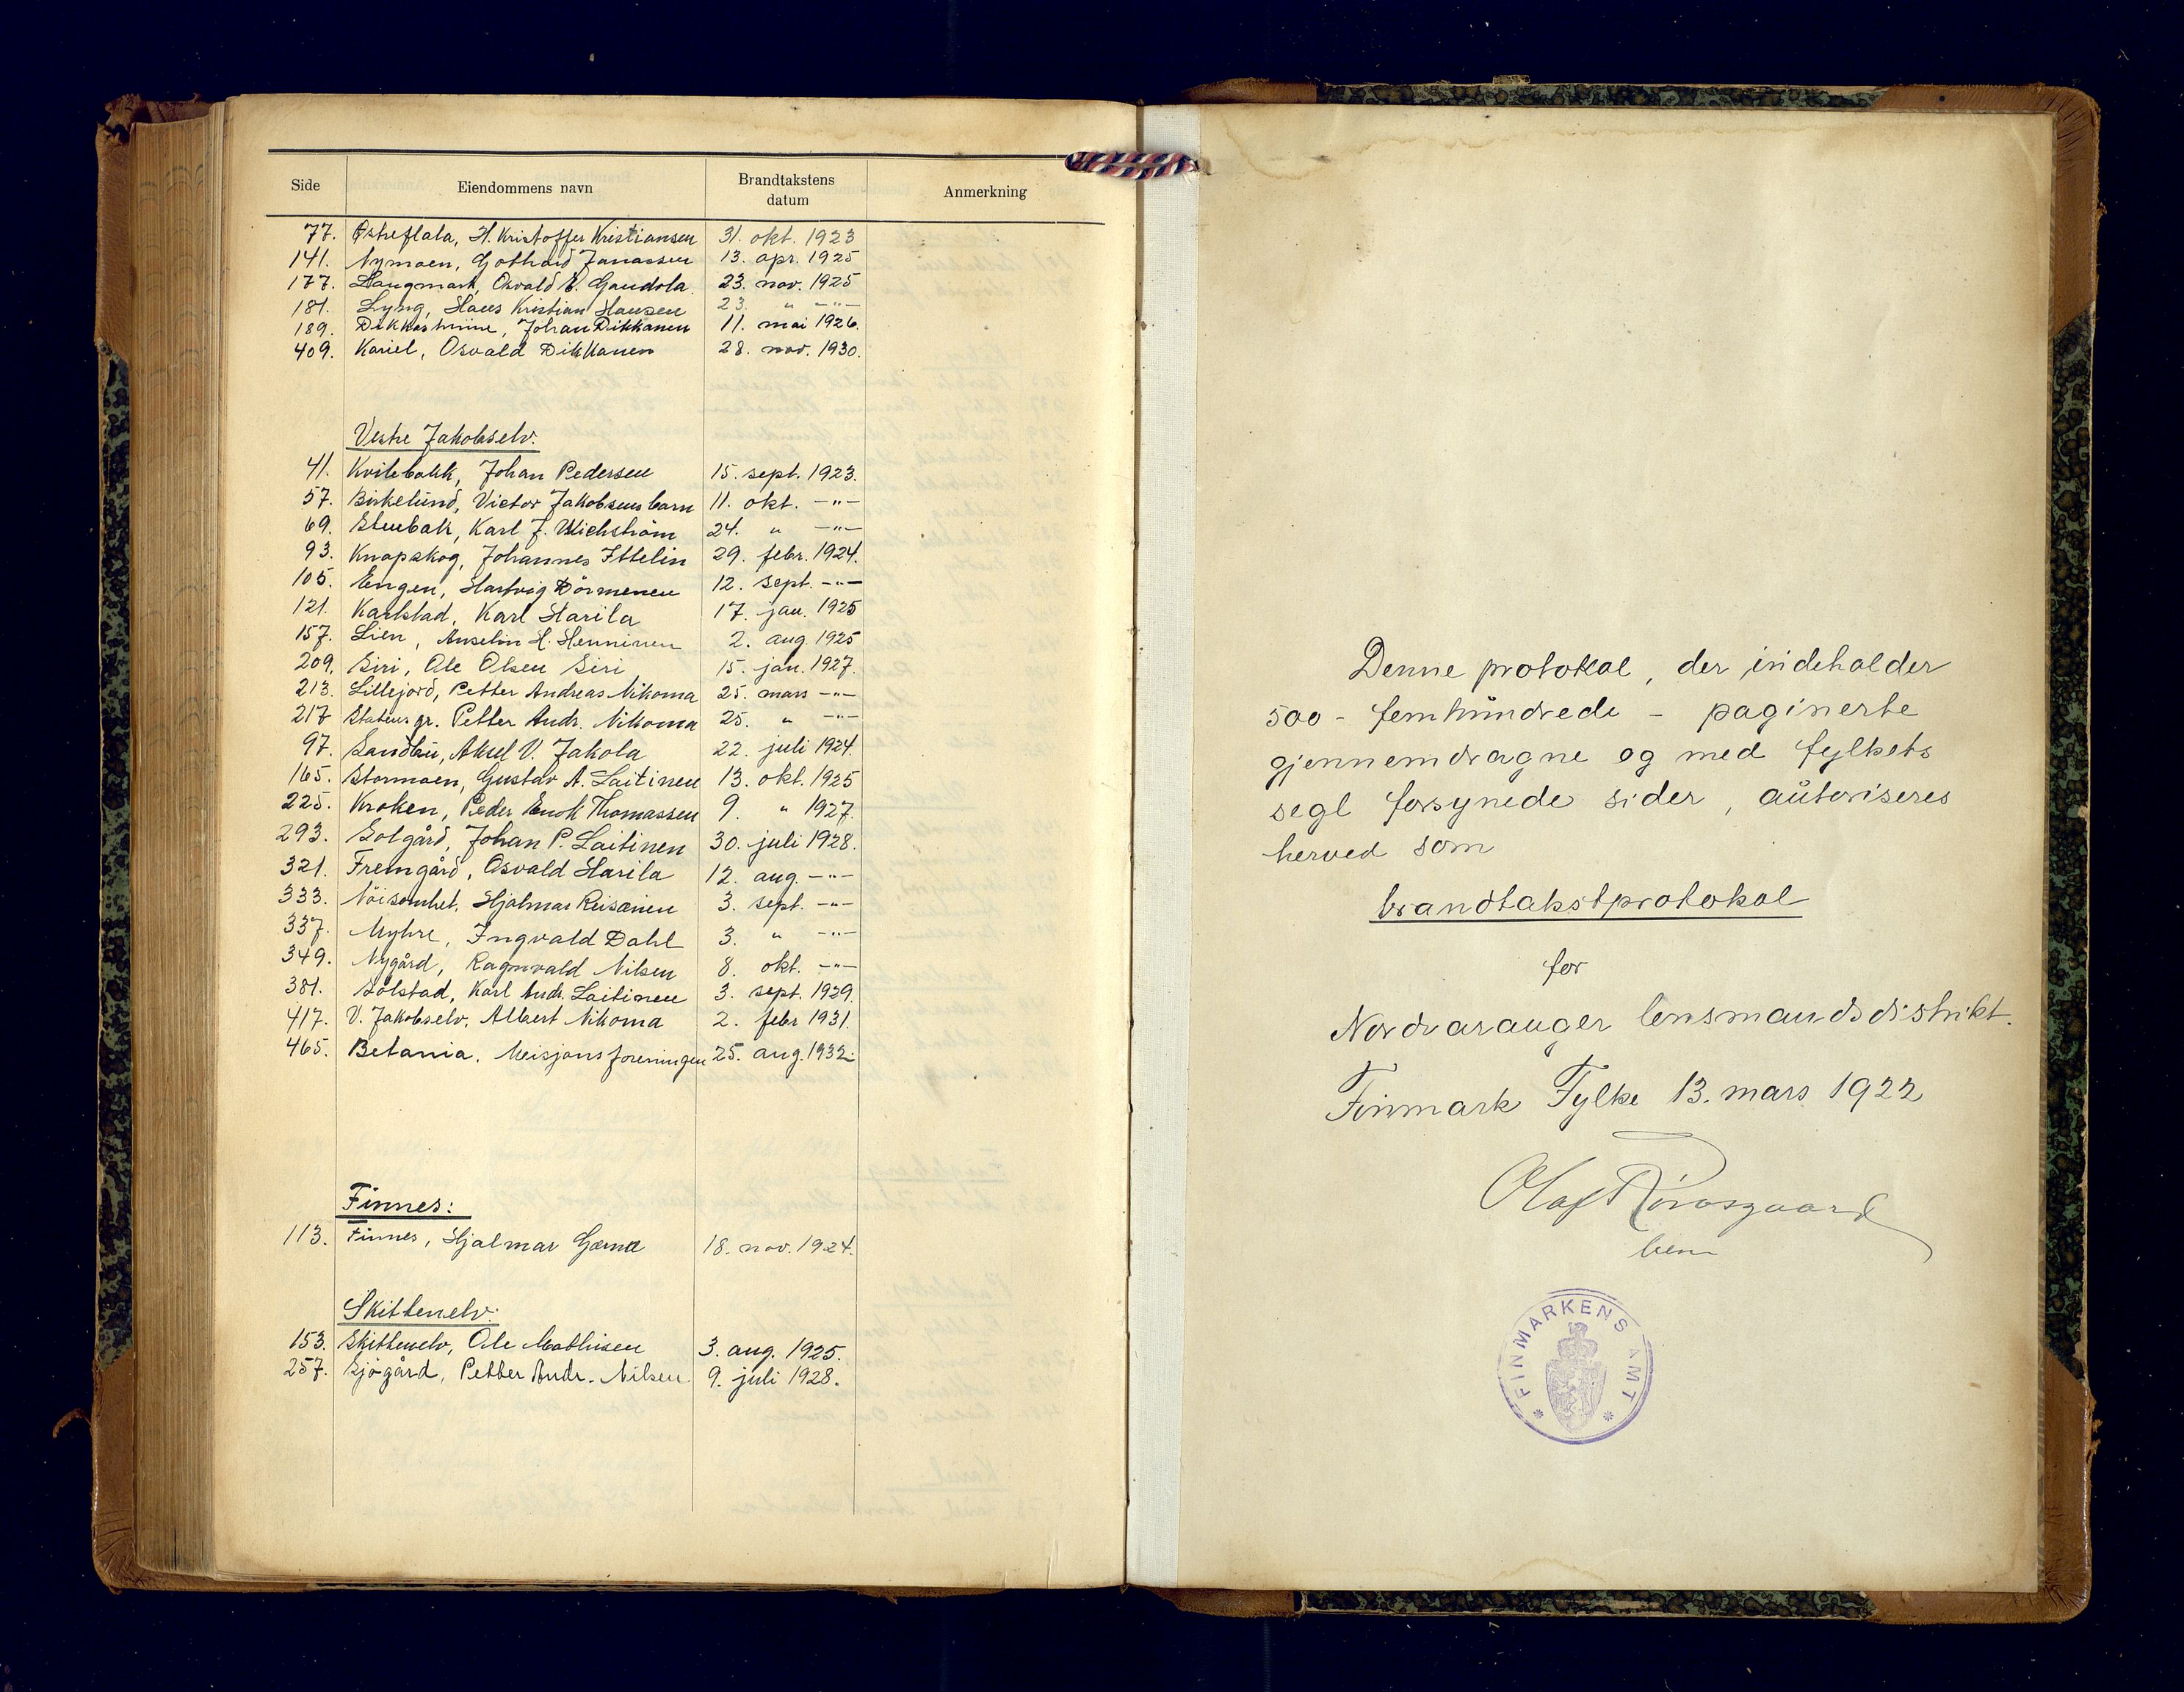 Side Eiendommens navn Brandtakstens datum Anmerkning
77. Østreflata, H. Kristoffer Kristiansen 31. okt. 1923
141. Nymoen, Gothard Janassen 13. apr. 1925
177. Haugmark, Osvald E. Gandola 23. nov. 1925
181. Lyng, Hans Kristian Hansen 23. " —"—
189. Johan Dikkanen 11. mai 1926.
409. Kariel, Osvald Dikkanen 28. nov. 1930.
Vestre Jakobselv.
41. Kvitebakk, Johan Pedersen 15. sept. 1923.
57. Birkelund, Victor Jakobsens barn 11. okt. —"—
69. Stenbak, Karl J. Wichstrøm 24. " —"—
93. Knapskog, Johannes Ittelin 29. febr. 1924.
105. Engen, Hartvig Dørmenen 12. sept. —"—
121. Karlstad, Karl Harila 17. jan. 1925
157. Lien, Anselin H. Henninen 2. aug 1925
209. Siri, Ole Olsen Siri 15. jan. 1927.
213. Lillejord, Petter Andreas Nikoma 25. mars —"—
217 Statens gr. Petter Andr. Nikoma 25. " —"—
97. Sandbu, Aksel V. Jakola 22. juli 1924.
165. Stormoen, Gustav A. Laitinen 13. okt. 1925
225. Kroken, Peder Enok Thomassen 9. " 1927.
293. Solgård, Johan P. Laitinen 30. juli 1928.
321. Fremgård, Osvald Harila 12. aug. —"—
333. Nöisomhet, Hjalmar Reisænen 3. sept. —"—
337. Myhre, Ingvald Dahl 3. " —"—
349. Nygård, Ragnvald Nilsen 8. okt. —"—
381. Solstad, Karl Andr. Laitinen 3. sept. 1929.
417. V. Jakobselv, Albert Nikoma 2. febr 1931.
465. Betania. Meisjonsforeningen 25. aug. 1932.
Finnes:
113. Finnes, Hjalmar Gærna 18. nov. 1924.
Skittenelv:
153. Skittenelv, Ole Mathisen 3. aug. 1925.
257. Sjøgård, Petter Andr. Nilsen. 9. juli 1928.
Denne protokol, der indeholder
500 - femhundrede - paginerte
gjennemdragne og med fylkets
segl forsynede sider, autoriseres
herved som
brandtakstprotokol
for
Nordvaranger lensmandsdistrikt.
Finmark Fylke 13. mars 1922
Olaf
FINMARKENS AMT